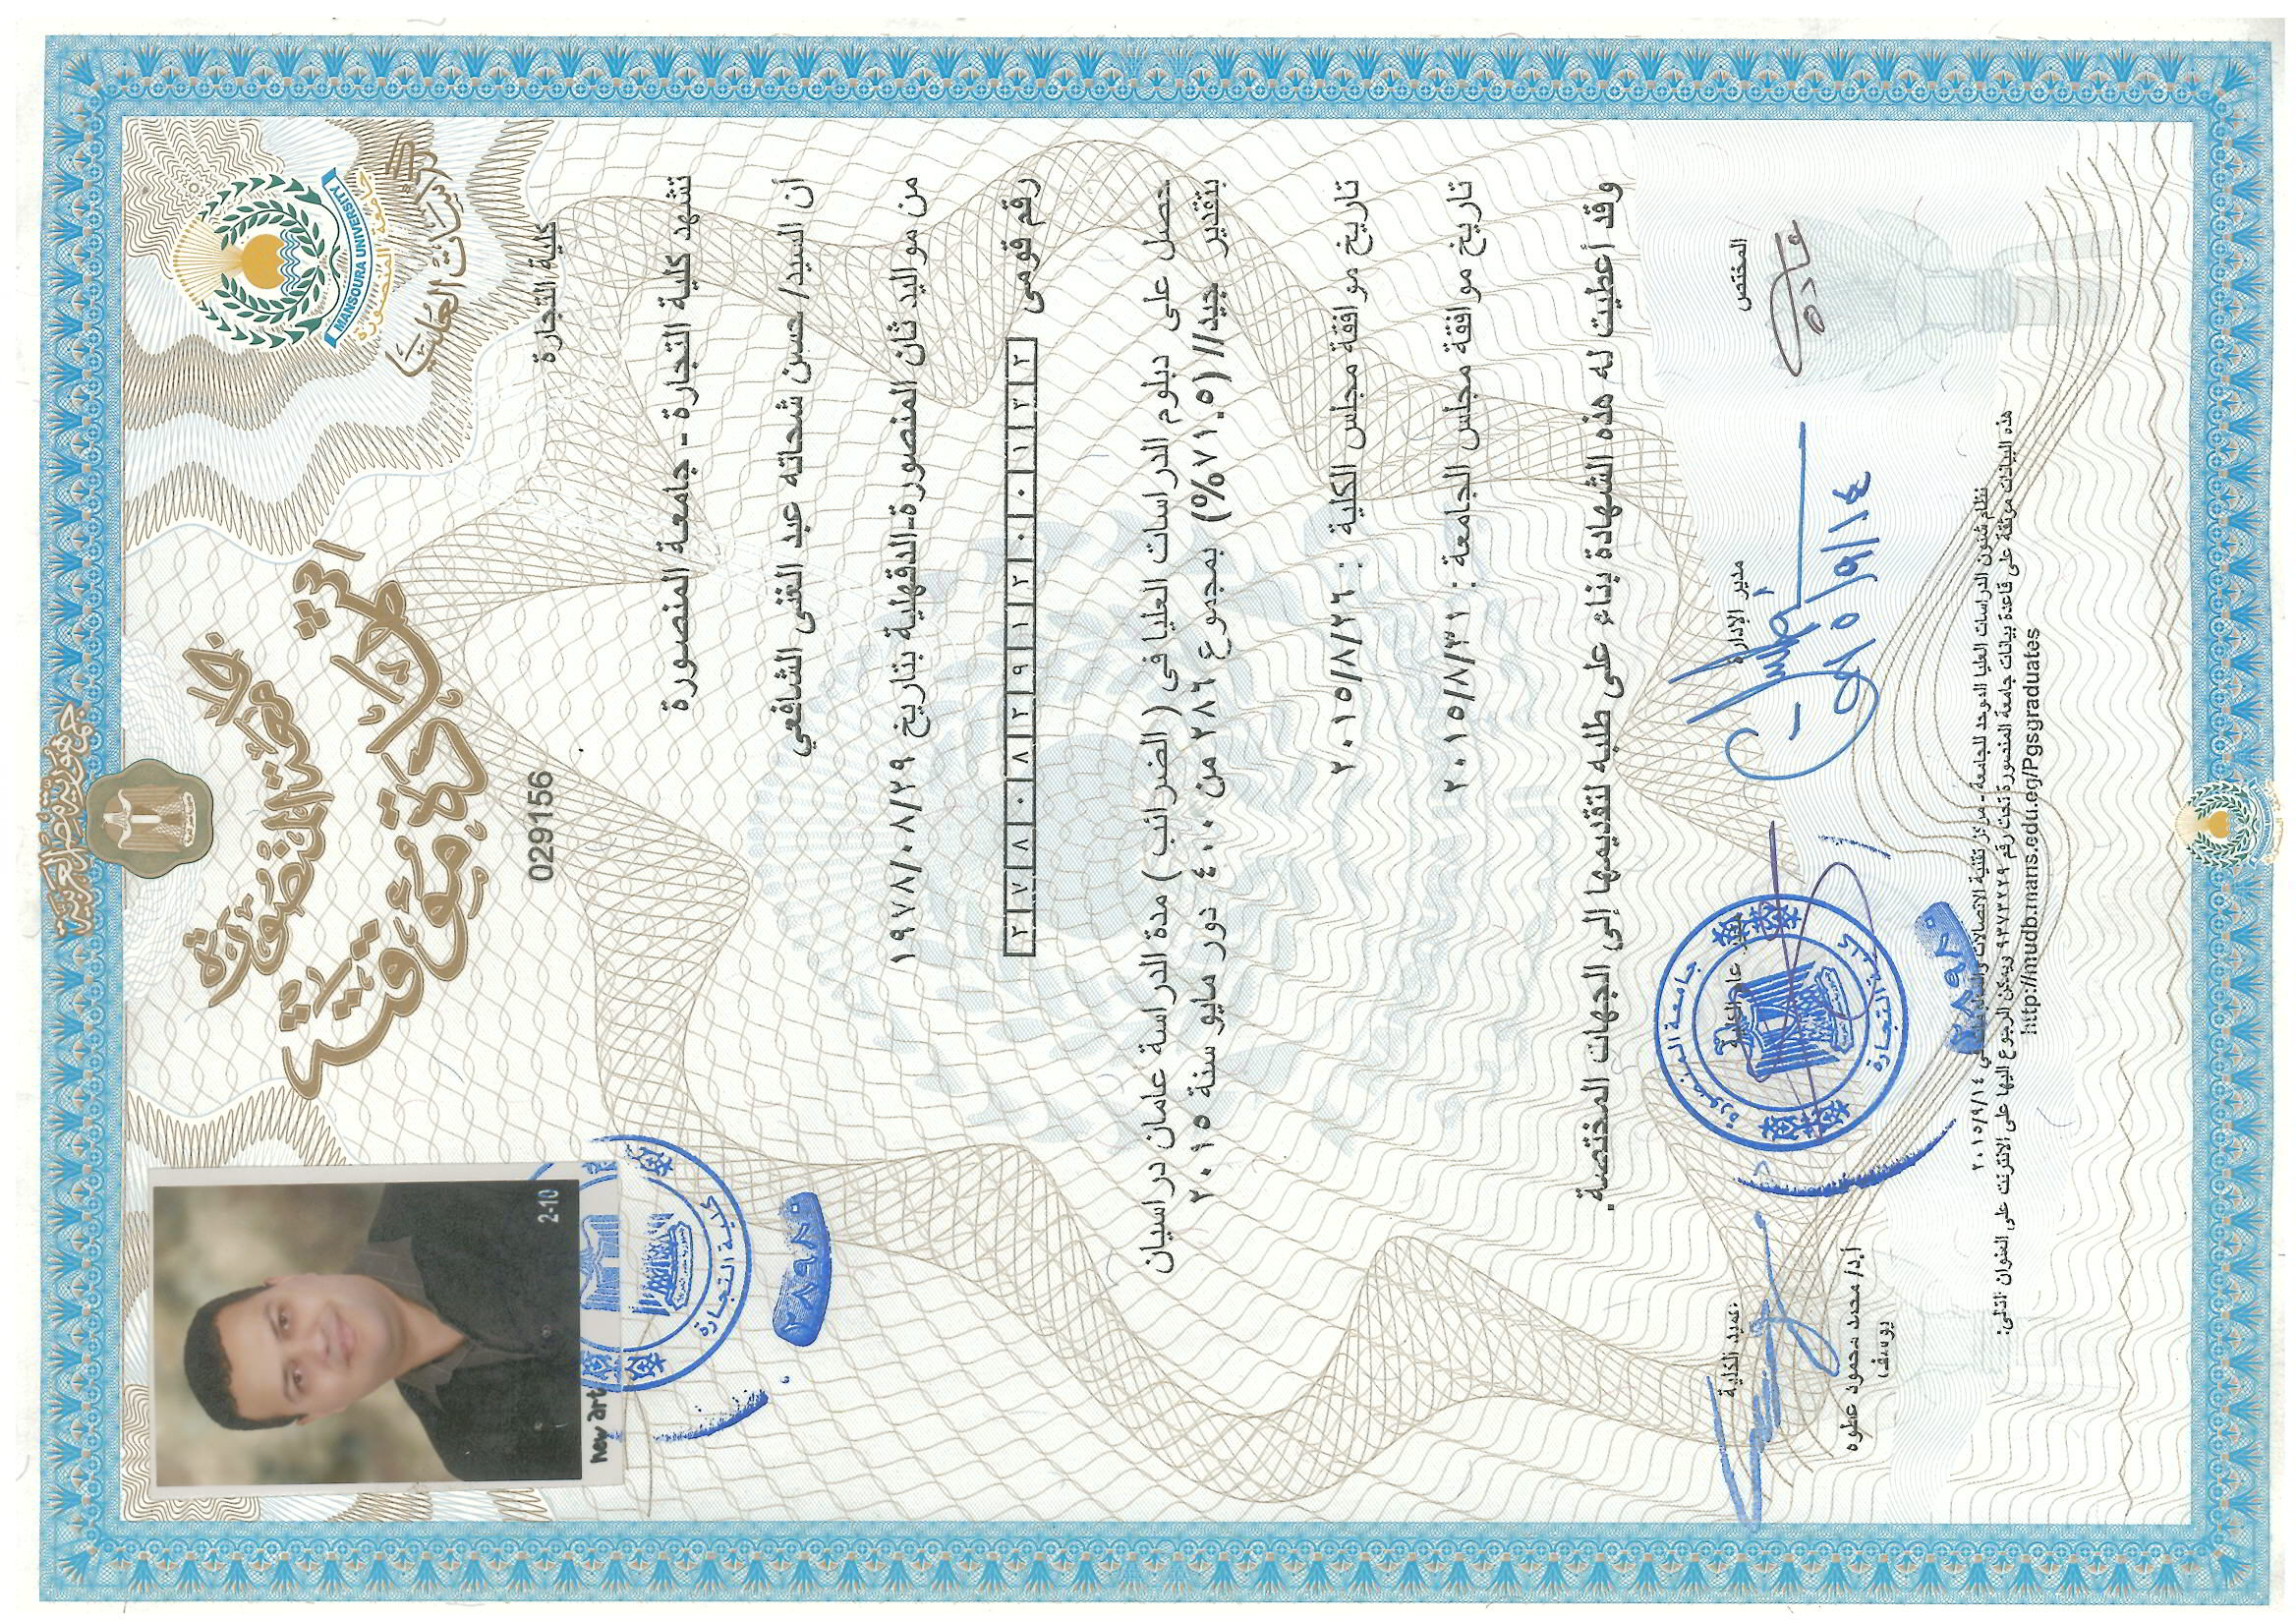 جمهورية مصر العربية
جامعة المنصورة
شهادة مؤقتة
الدراسات العليا
جامعة المنصورة
MANSOURA UNIVERSITY
كلية التجارة
029156
2-10
new art
تشهد كلية التجارة - جامعة المنصورة
أن السيد/ حسن شحاته عبد الغنى الشافعي
من مواليد ثان المنصورة-الدقهلية بتاريخ ١٩٧٨/٠٨/٢٩
رقم قومى ٢٧٨٠٨٢٩١٢٠٠١٣٢
حصل على دبلوم الدراسات العليا فى ( الضرائب ) مدة الدراسة عامان دراسيان
بتقدير جيد// (٧١.٥%) بمجموع ٢٨٦ من ٤٠٠ دور مايو سنة ٢٠١٥
تاريخ موافقة مجلس الكلية : ٢٠١٥/٨/٢٦
تاريخ موافقة مجلس الجامعة : ٢٠١٥/٨/٣١
وقد أعطيت له هذه الشهادة بناء على طلبه لتقديمها إلى الجهات المختصة.
المختص
مدير الإدارة
عميد الكلية
٢٠١٥/٩/١٤
أ.د/ محمد محمود عطوه
يوسف
جامعة المنصورة
كلية التجارة
كلية التجارة
نظام شئون الدراسات العليا الموحد للجامعة - مركز تقنية الاتصالات ٢٠١٥/٩/١٤
هذه البيانات موثقة على قاعدة بيانات جامعة المنصورة تحت رقم ٩٣٧٣٢٢٩ ويمكن الرجوع اليها على الانترنت على العنوان التالى:
http://mudb.mans.edu.eg/Pgsgraduates